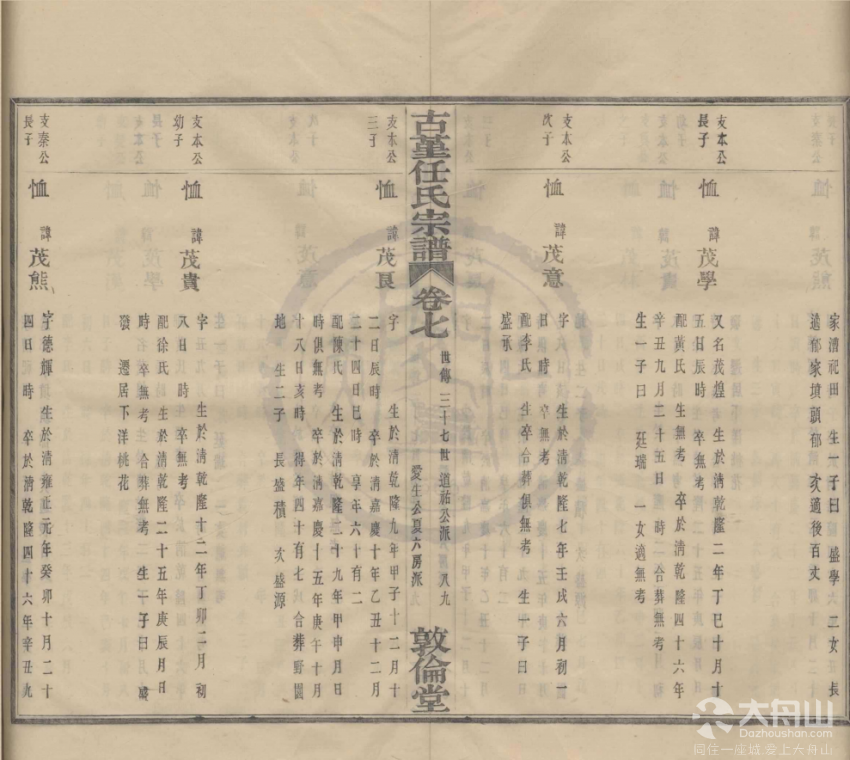 家清祀田 生一子曰盛學 二女長
適郁家墳頭郁 次適後百丈
支本公
長子
恤 諱茂學
又名茂煌 生於清乾隆二年丁巳十月十
五日辰時 卒無考
配黃氏 生無考 卒於清乾隆四十六年
辛丑九月二十五日 時 合葬無考
生一子曰 廷瑞 一女適無考
支本公
次子
恤 諱茂意
字 生於清乾隆七年壬戌六月初一
日 時 卒無考
配李氏 生卒合葬俱無考 生一子曰
盛永
古堇任氏宗譜 卷七 世傳 三十七世 道祐公派 八九
愛生公夏六房派
敦倫堂
支本公
三子
恤 諱茂良
字 生於清乾隆九年甲子十二月十
二日辰時 卒於清嘉慶十年乙丑十二月
二十四日巳時 享年六十有二
配陳氏 生於清乾隆二十九年甲申月日
時俱無考 卒於清嘉慶十五年庚午十月
十八日亥時 得年四十有七 合葬野園
地 生二子 長盛積 次盛源
支本公
幼子
恤 諱茂貴
字 生於清乾隆十二年丁卯二月初
八日 時 卒無考
配徐氏 生於清乾隆二十五年庚辰月日
時 卒無考 合葬無考 生一子曰 盛
發 遷居下洋桃花
支秦公
長子
恤 諱茂熊
字德輝 生於清雍正元年癸卯十月二十
四日 時 卒於清乾隆四十六年辛丑九
大舟山
Dazhoushan.com
同住一座城 愛上大舟山